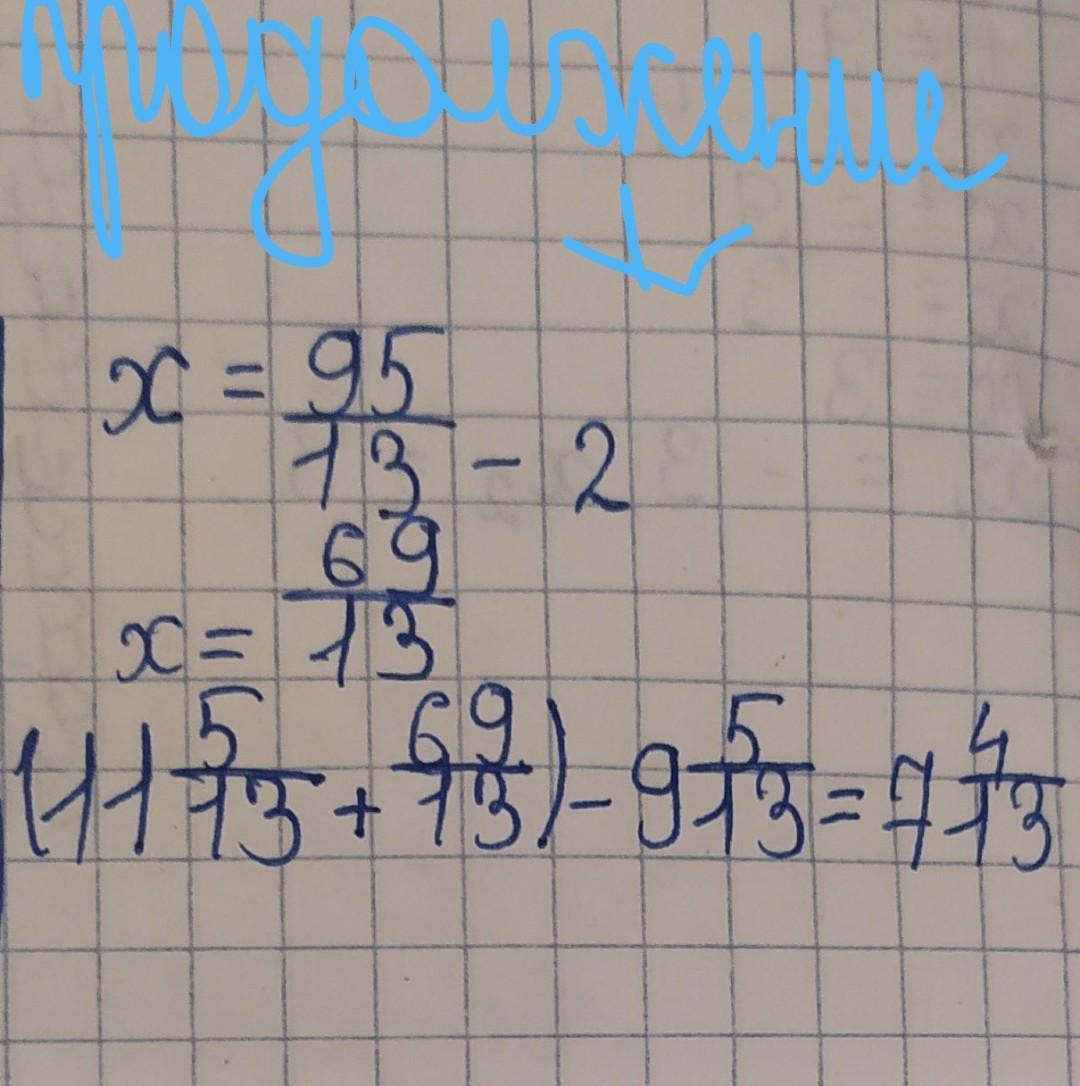 продолжение
x = 95/13 - 2
x = 69/13
(11 5/13 + 69/13) - 9 5/13 = 7 4/13